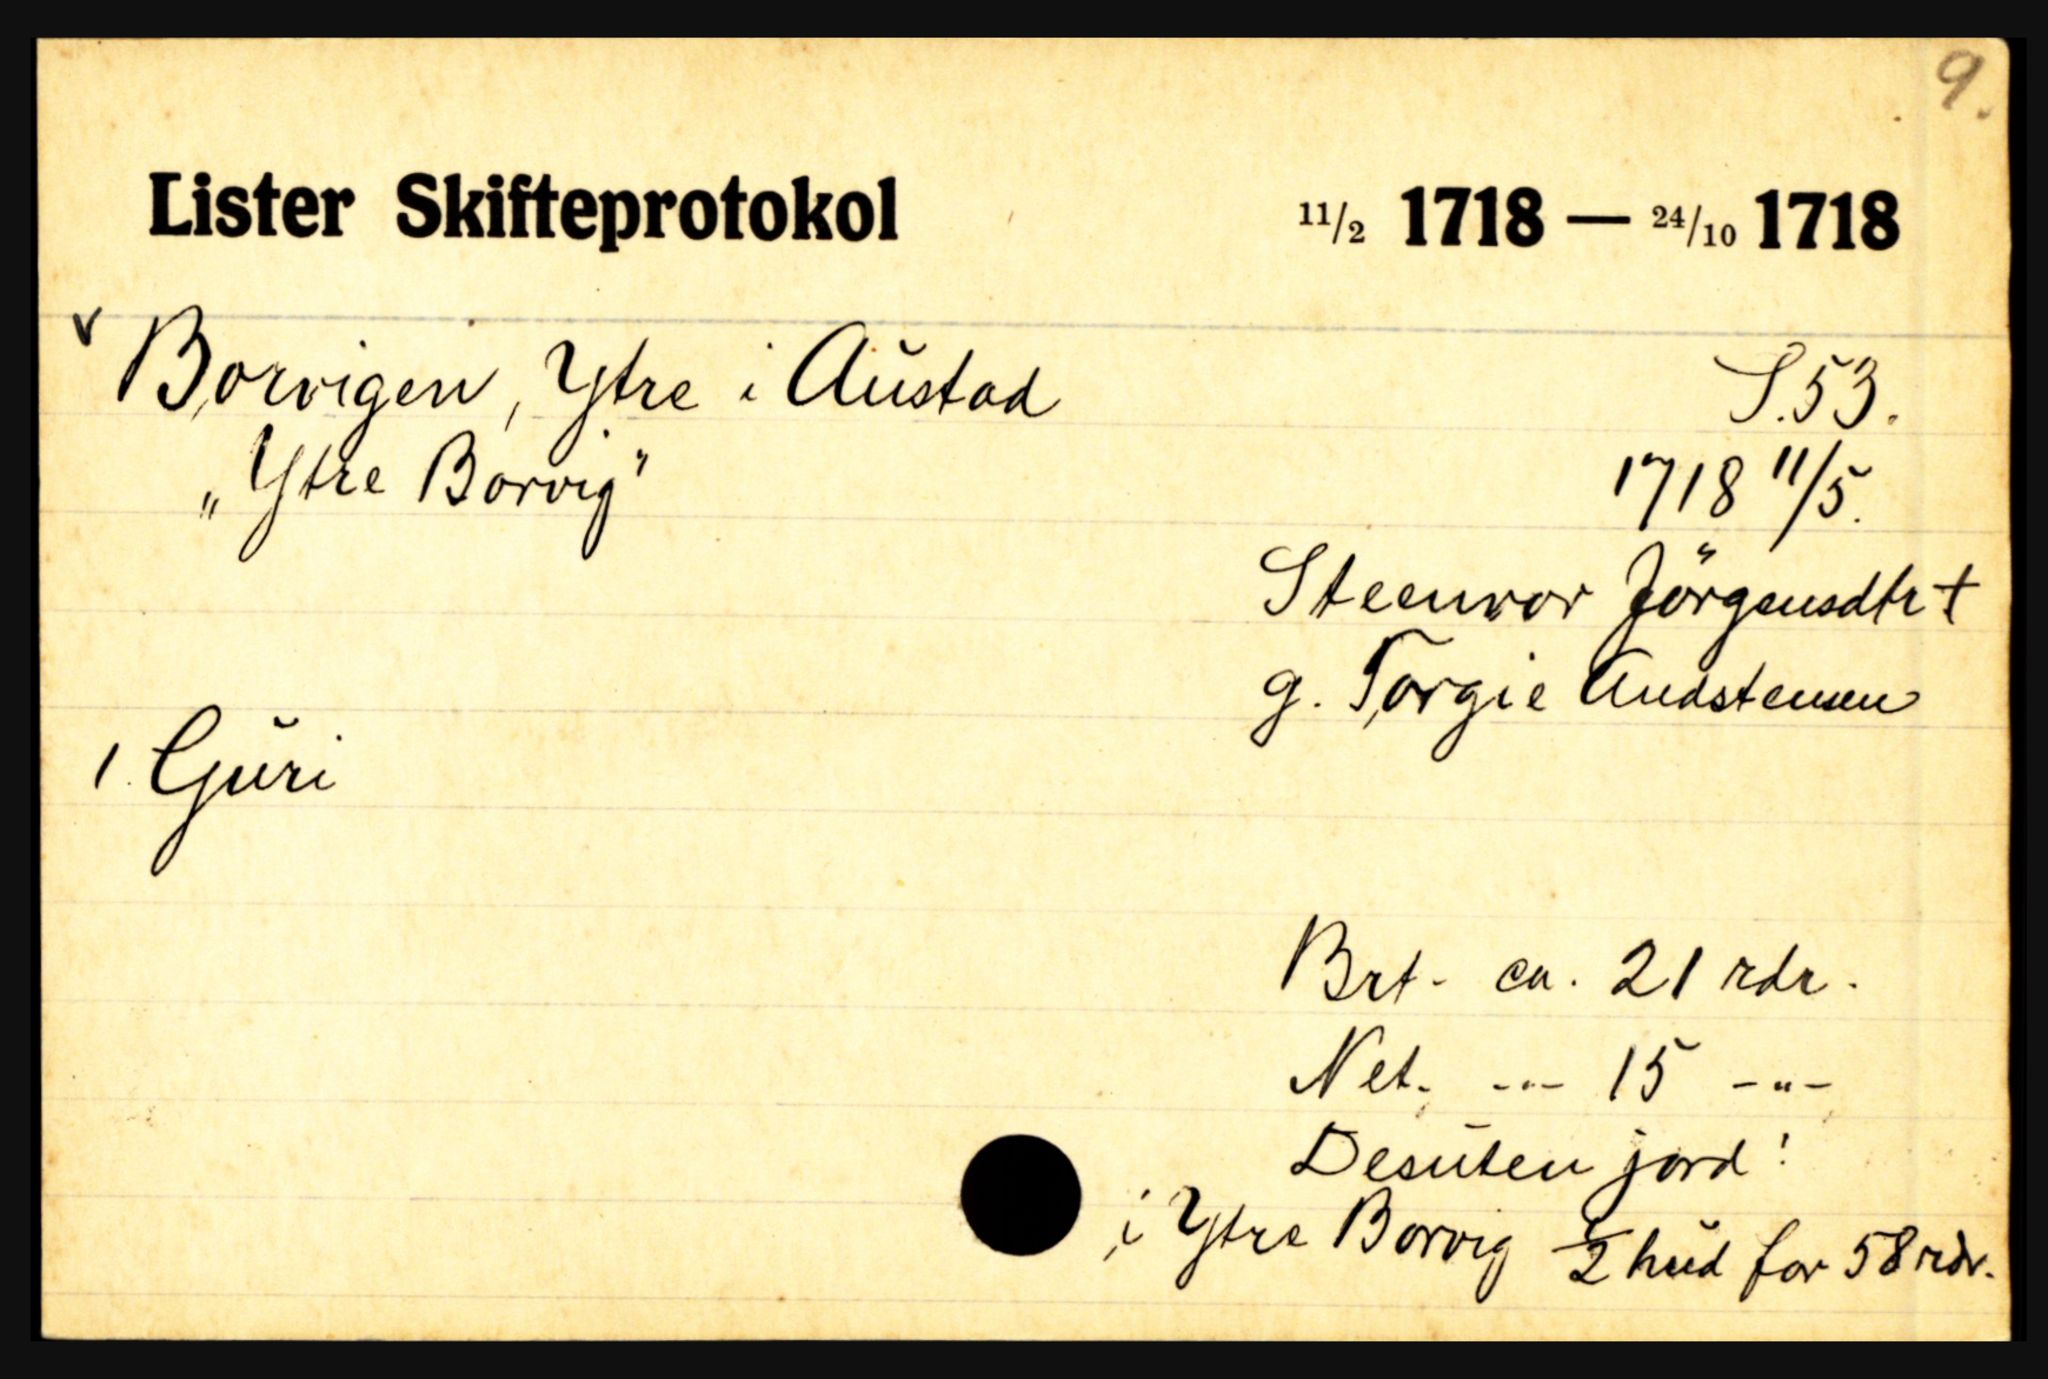 9.
Lister Skifteprotokol 11/2 1718 — 24/10 1718
v Borvigen, Ytre i Austad S. 53.
„Ytre Borvig" 1718 11/5.
Steenvor Jörgensdtr †
g. Torgie Audstensen
1. Guri
Brt. ca. 21 rdr.
Net. -"- 15 -"-
Desuten jord:
i Ytre Borvig 1/2 hud for 58 rdr.